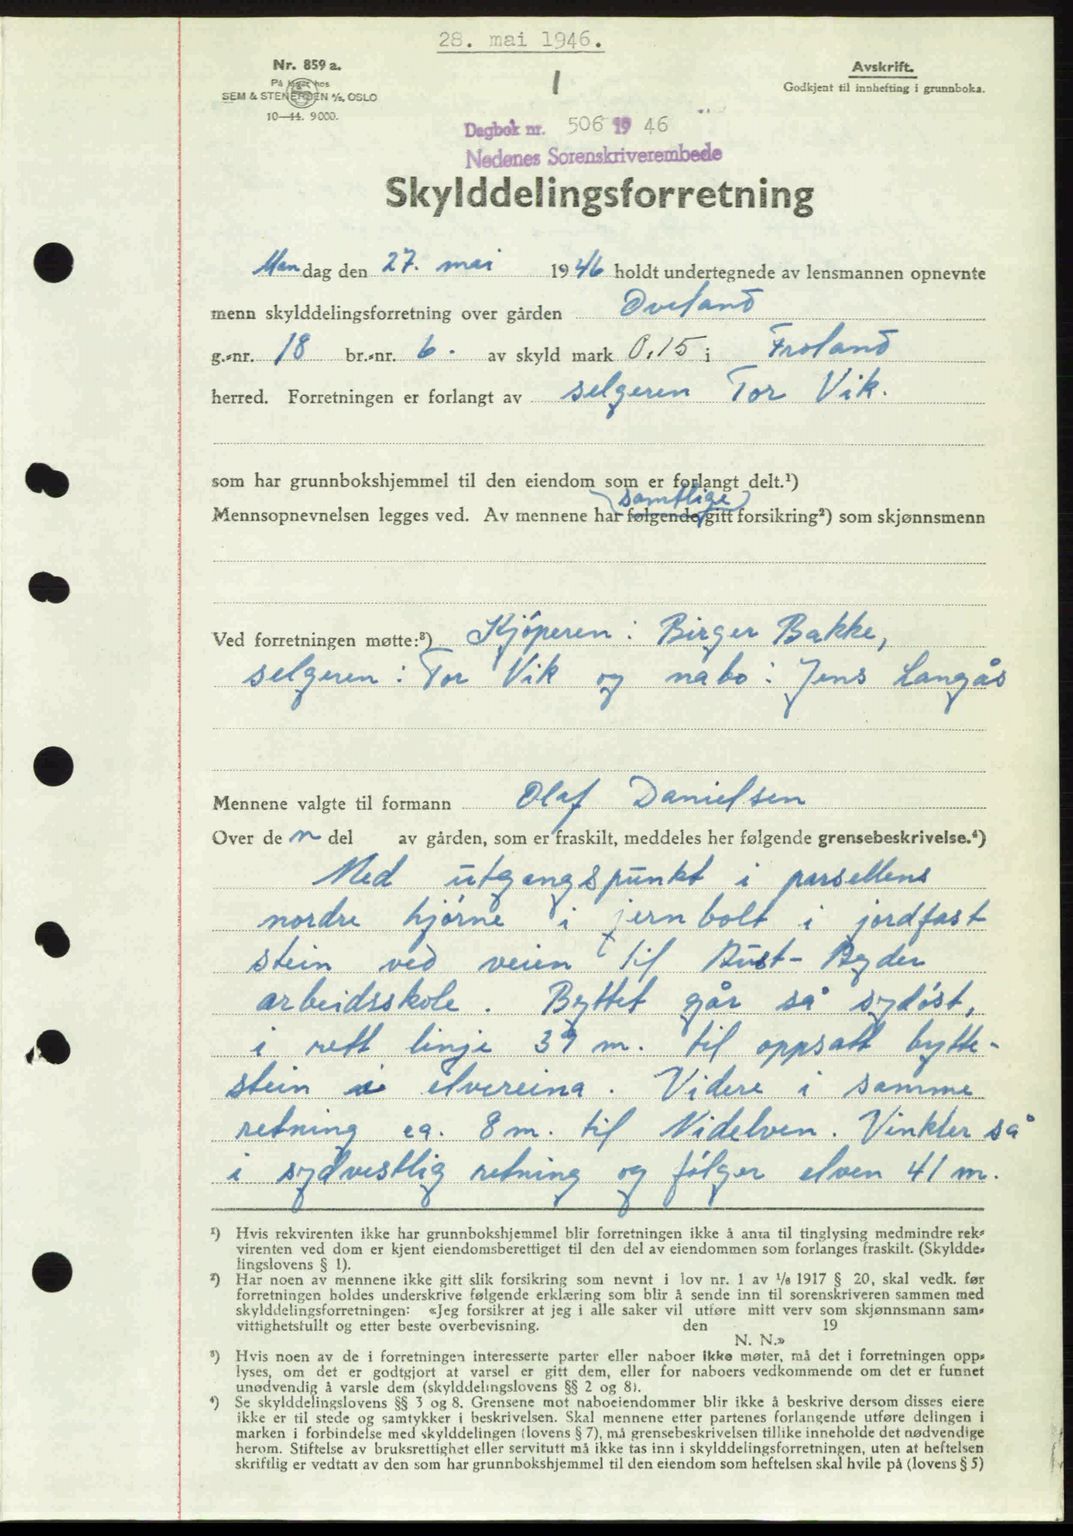 28. mai 1946.
Nr. 859 a.
På lager hos
SEM & STENERSEN A/S, OSLO
10—44. 9000.
1
Avskrift.
Godkjent til innhefting i grunnboka.
Dagbok nr. 506 1946
Nedenes Sorenskriverembede
Skylddelingsforretning
Mandag den 27. mai 1946 holdt undertegnede av lensmannen opnevnte
menn skylddelingsforretning over gården Øveland
g.-nr. 18 br.-nr. 6. av skyld mark 0,15 i Froland
herred. Forretningen er forlangt av selgeren Tor Vik.
som har grunnbokshjemmel til den eiendom som er forlangt delt.¹)
samtlige
Mennsopnevnelsen legges ved. Av mennene har følgende gitt forsikring²) som skjønnsmenn
Ved forretningen møtte:³) Kjöperen: Birger Bakke,
selgeren: Tor Vik og nabo: Jens Langås
Mennene valgte til formann Olaf Danielsen
Over den del av gården, som er fraskilt, meddeles her følgende grensebeskrivelse.⁴)
Med utgangspunkt i parsellens
nordre hjørne i jernbolt i jordfast
stein ved veien til Aust-Agder
arbeidsskole. Byttet går så sydöst,
i rett linje 39 m. til oppsatt bytte-
stein i elvereina. Videre i samme
retning ca. 8 m. til Nidelven. Vinkler så
i sydvestlig retning og fölger elven 41 m.
¹) Hvis rekvirenten ikke har grunnbokshjemmel blir forretningen ikke å anta til tinglysing medmindre rek-
virenten ved dom er kjent eiendomsberettiget til den del av eiendommen som forlanges fraskilt. (Skyldde-
lingslovens § 1).
²) Har noen av mennene ikke gitt slik forsikring som nevnt i lov nr. 1 av 1/6 1917 § 20, skal vedk. før
forretningen holdes underskrive følgende erklæring som blir å sende inn til sorenskriveren sammen med
skylddelingsforretningen: «Jeg forsikrer at jeg i alle saker vil utføre mitt verv som skjønnsmann sam-
vittighetsfullt og etter beste overbevisning. den 19
N. N.»
³) Hvis noen av de i forretningen interesserte parter eller naboer ikke møter, må det i forretningen opp-
lyses, om det er godtgjort at varsel er gitt dem, eller for naboers vedkommende om det er funnet
unødvendig å varsle dem (skylddelingslovens §§ 2 og 8).
⁴) Se skylddelingslovens §§ 3 og 8. Grensene mot naboeiendommer blir ikke å beskrive dersom disses eiere
ikke er til stede og samtykker i beskrivelsen. Skal mennene etter partenes forlangende utføre delingen i
marken i forbindelse med skylddelingen (lovens § 7), må grensebeskrivelsen tillike inneholde det nødvendige
herom. Stiftelse av bruksrettighet eller servitutt må ikke tas inn i skylddelingsforretningen, uten at heftelsen
skriftlig er vedtatt av den som har grunnbokshjemmel til den eiendom som heftelsen skal hvile på (lovens § 5)